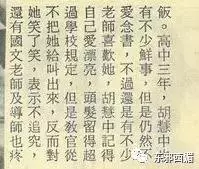 飯。高中三年，胡慧中
有不少鮮事，但是仍然很
愛念書，不過還是有不少
老師喜歡她，胡慧中記得
自己愛漂亮，頭髮留得超
過學校規定，但是教官從
不把她給叫出來，反而對
她笑了笑，表示不追究，
還有國文老師及導師也疼
东郊西湄